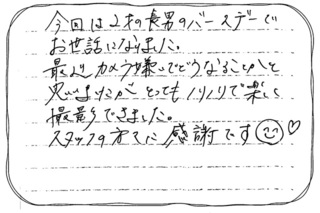 今回は2才の長男のバースデーで
お世話になりました。
最近カメラ嫌いでどうなることかと
思いましたが とってもノリノリで楽しく
撮影できました。
スタッフの方々に感謝です